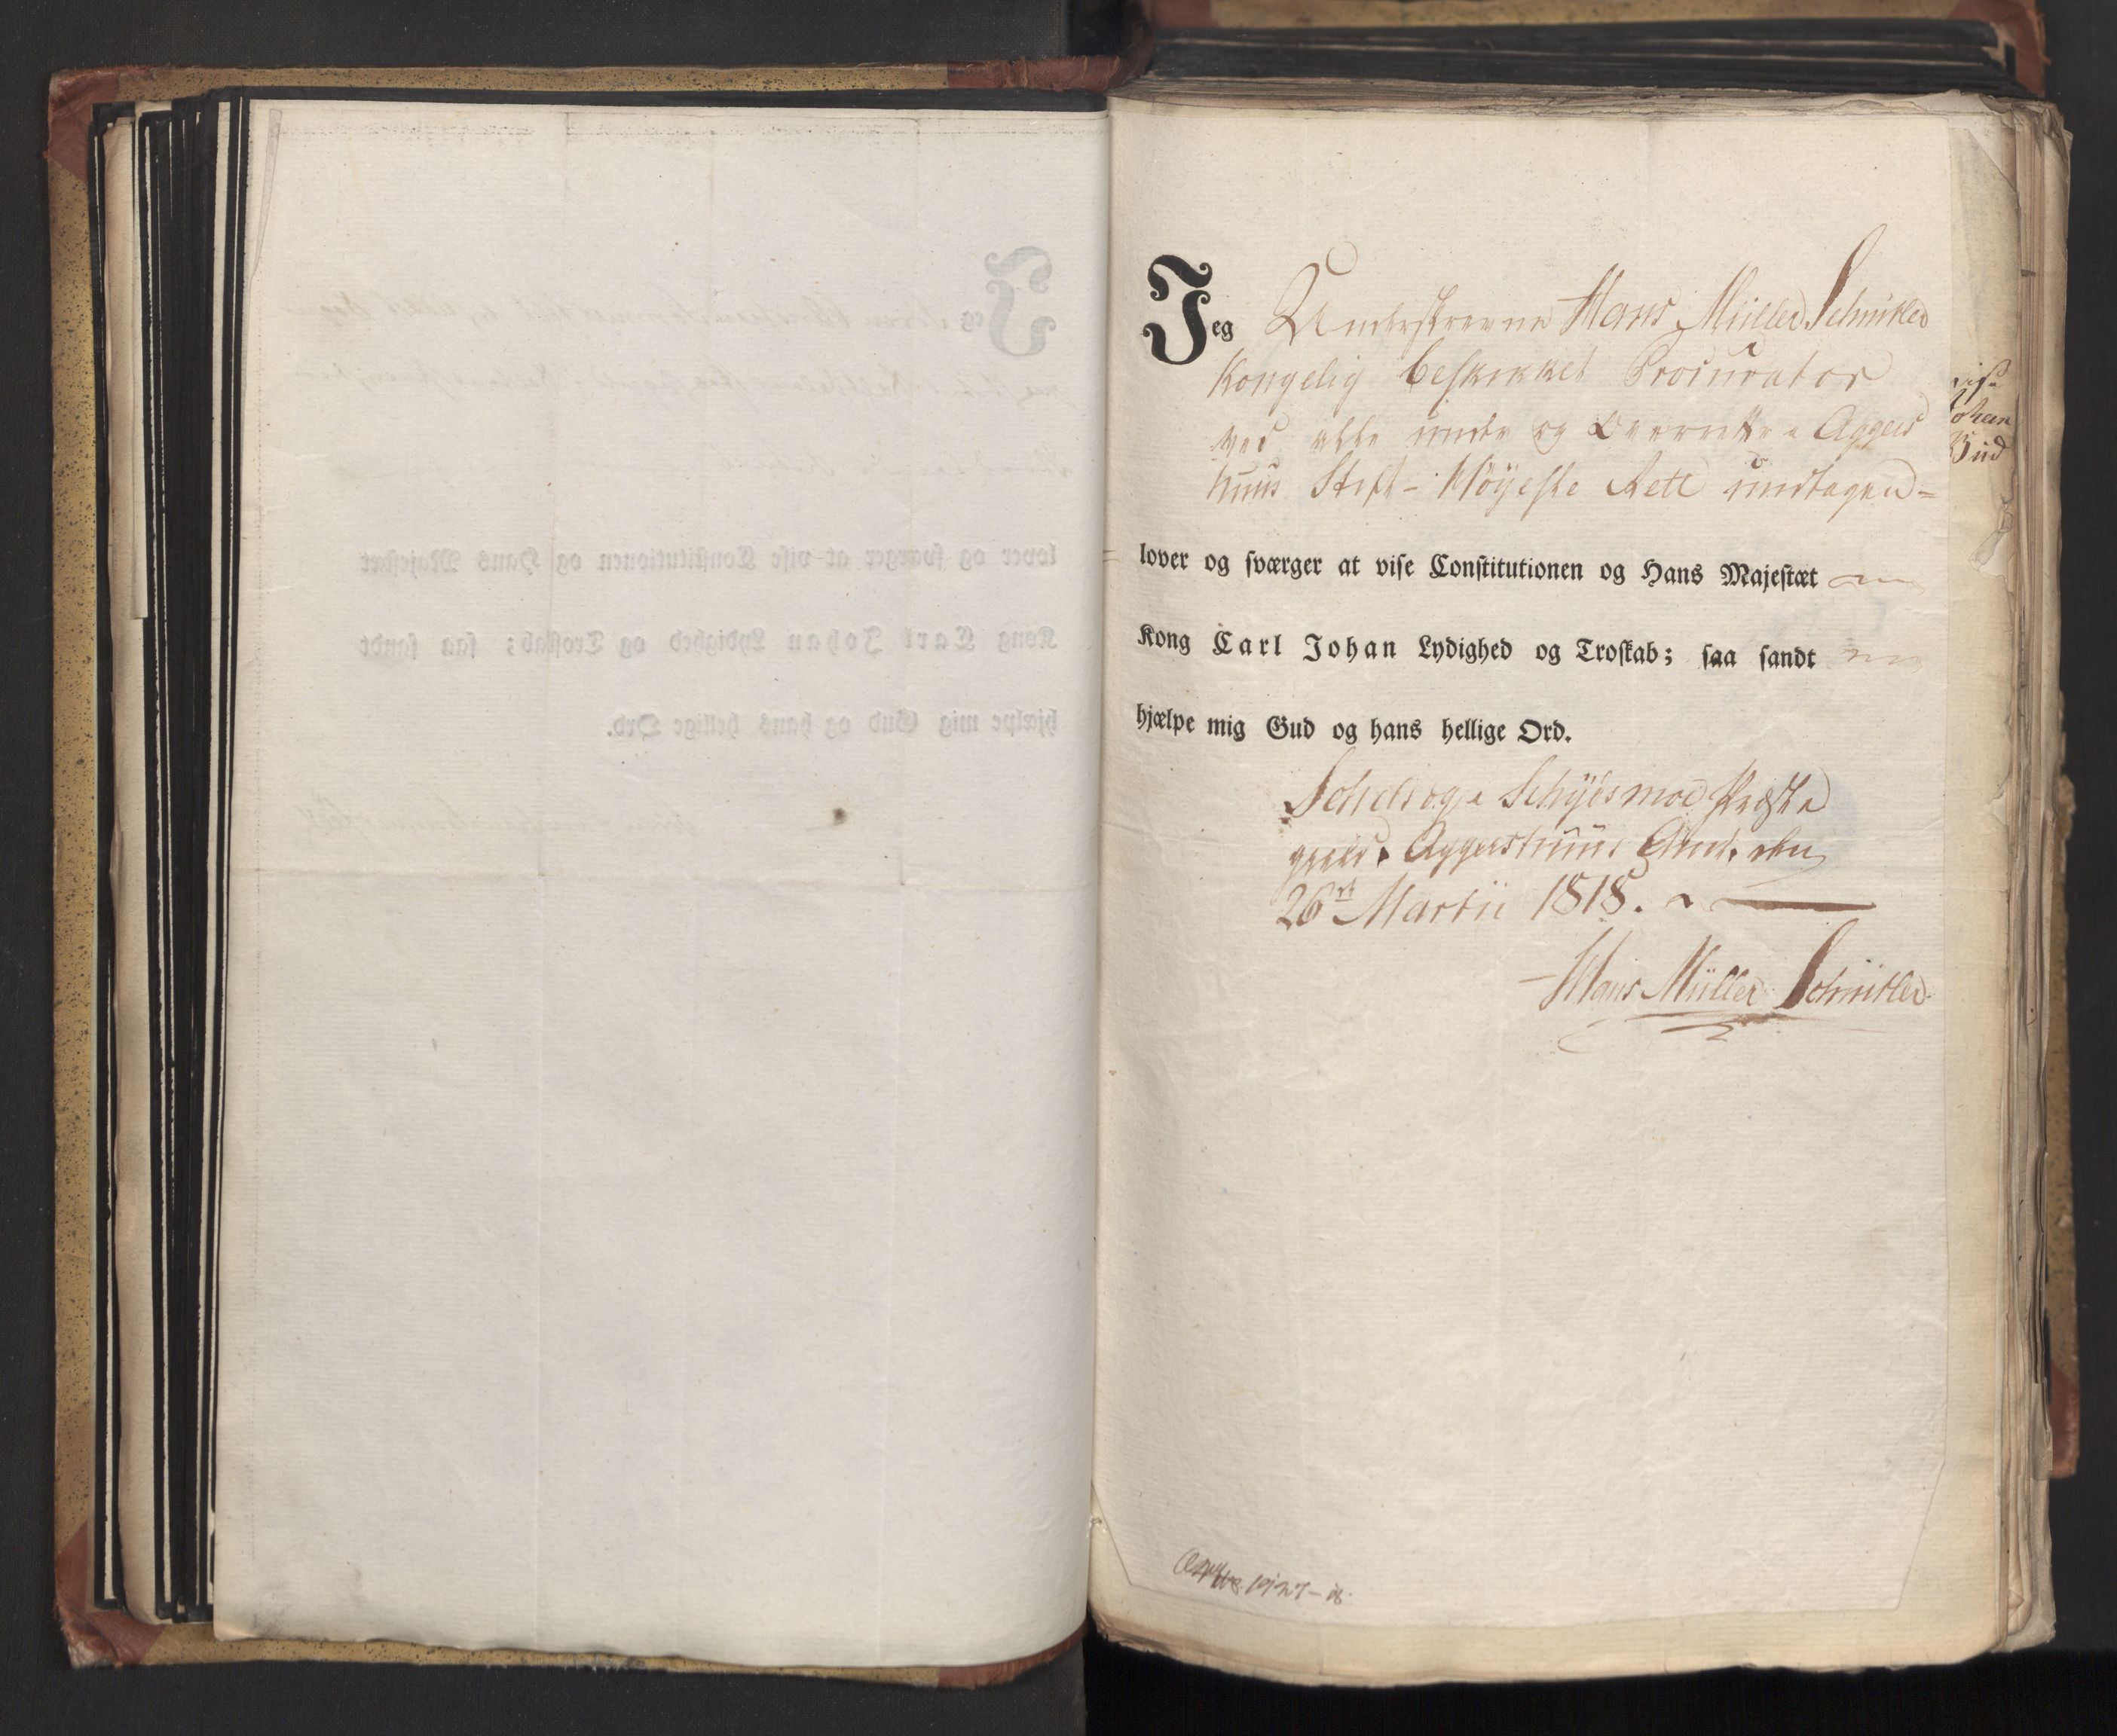 Jeg Underskrevne Hans Müller Schnitler
Kongelig beskikket Procurator
ved alle under og Overretter i Aggers
huus Stift - Høyeste Rett undtagen =
lover og sværger at vise Constitutionen og Hans Majestæt
Kong Carl Johan Lydighed og Troskab; saa sandt
hjælpe mig Gud og hans hellige Ord.
Schydsmoe Præste
gield. Aggershuus Amt. den
26de Martii 1818.
Hans Müller Schnitler